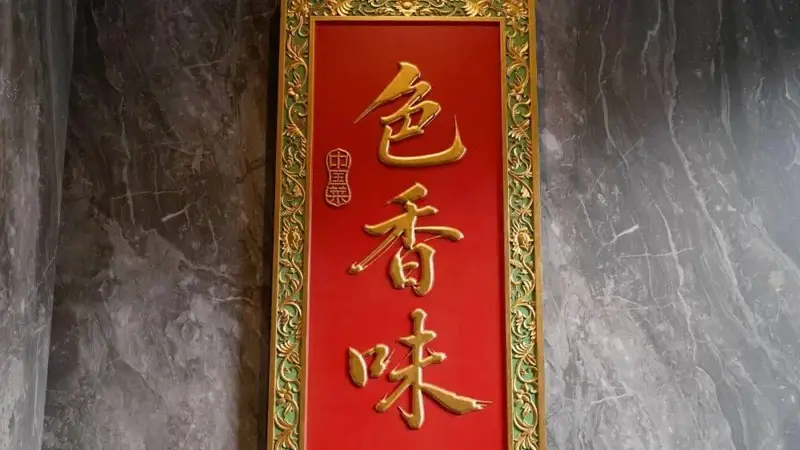 色香味
中国菜